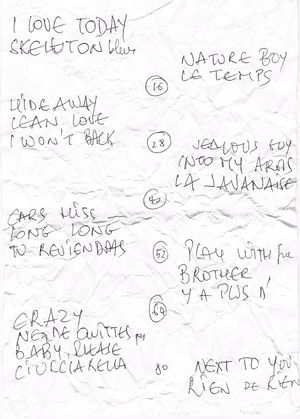 I LOVE TODAY
SKELETON blues
NATURE BOY
LE TEMPS
16
HIDEAWAY
LEAN LOVE
I WON'T BACK
28
JEALOUS GUY
INTO MY ARMS
LA JAVANAISE
40
CARS HISS
LONG LONG
TU REVIENDRAS
52
PLAY WITH fire
BROTHER
Y A PLUS D'
64
CRAZY
NE ME QUITTES pas
BABY PLEASE
80
NEXT TO YOU
RIEN DE RIEN